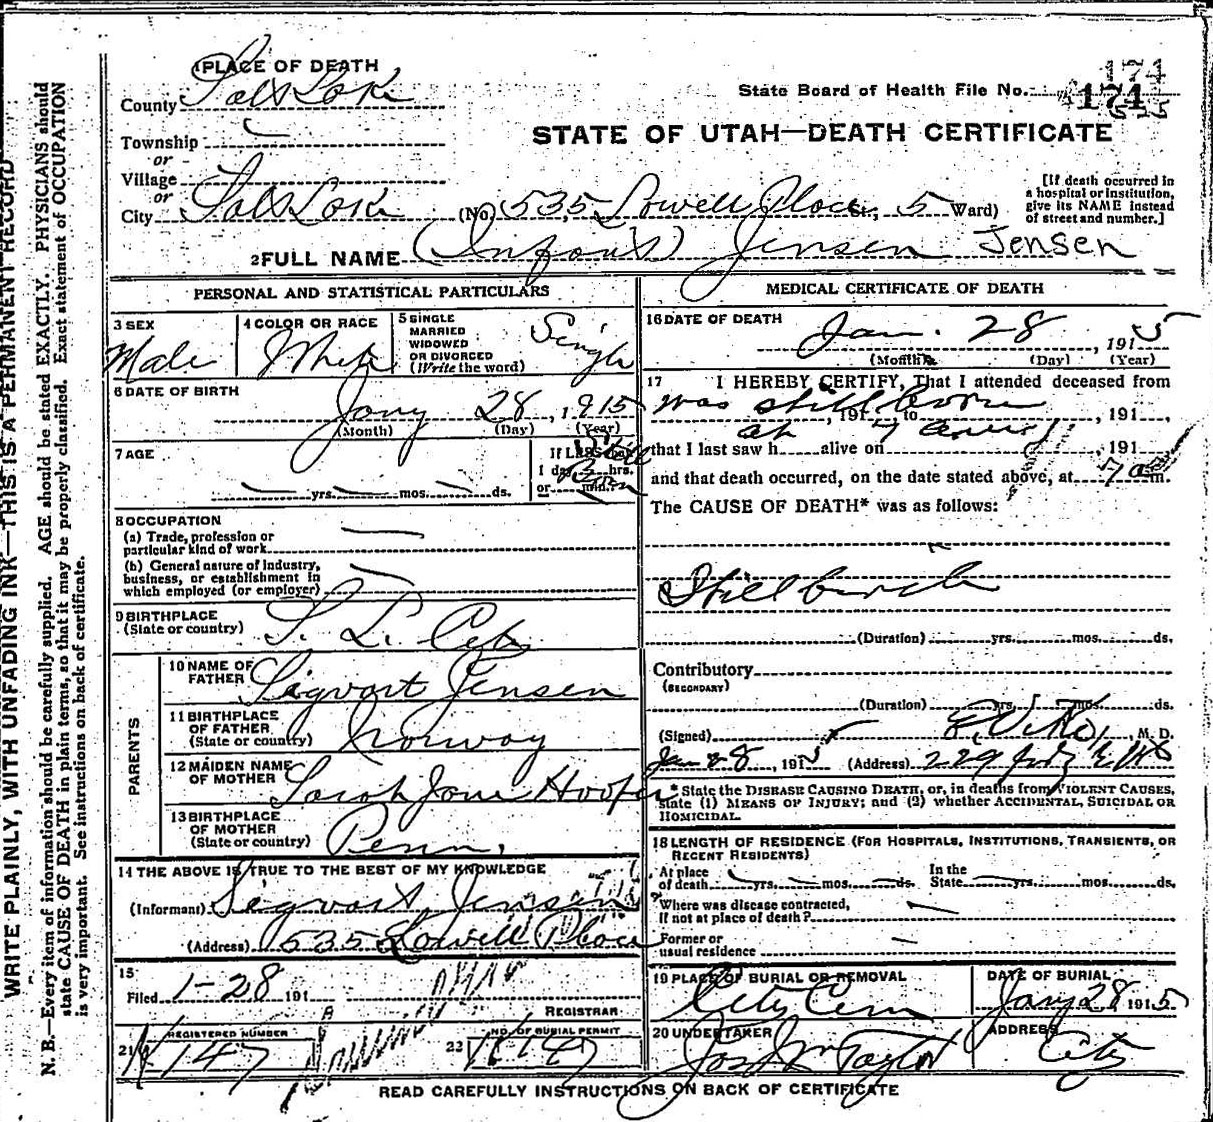 WRITE PLAINLY, WITH UNFADING INK—THIS IS A PERMANENT RECORD
N. B.—Every item of information should be carefully supplied. AGE should be stated EXACTLY. PHYSICIANS should
state CAUSE OF DEATH in plain terms, so that it may be properly classified. Exact statement of OCCUPATION
is very important. See instructions on back of certificate.
1 PLACE OF DEATH
County Salt Lake
Township
or
Village
or
City Salt Lake (No. 535 Lowell Place St.; 5 Ward)
174
State Board of Health File No. 174
STATE OF UTAH—DEATH CERTIFICATE
[If death occurred in
a hospital or institution,
give its NAME instead
of street and number.]
2 FULL NAME (Infant) Jensen Jensen
PERSONAL AND STATISTICAL PARTICULARS
3 SEX
Male
4 COLOR OR RACE
White
5 SINGLE
MARRIED
WIDOWED
OR DIVORCED
(Write the word)
Single
6 DATE OF BIRTH
Jany 28, 1915
(Month) (Day) (Year)
7 AGE
yrs. mos. ds.
If LESS than
1 day hrs.
or min.?
Still
Born
8 OCCUPATION
(a) Trade, profession or
particular kind of work
(b) General nature of industry,
business, or establishment in
which employed (or employer)
9 BIRTHPLACE
(State or country)
S. L. City
PARENTS
10 NAME OF
FATHER
Sigvart Jensen
11 BIRTHPLACE
OF FATHER
(State or country)
Norway
12 MAIDEN NAME
OF MOTHER
Sarah Jane Hooper
13 BIRTHPLACE
OF MOTHER
(State or country)
Penn.
14 THE ABOVE IS TRUE TO THE BEST OF MY KNOWLEDGE
(Informant) Sigvart Jensen
(Address) 535 Lowell Place
15
Filed 1-28 191
REGISTRAR
REGISTERED NUMBER
21 147
NO. OF BURIAL PERMIT
22
MEDICAL CERTIFICATE OF DEATH
16 DATE OF DEATH
Jan. 28, 1915
(Month) (Day) (Year)
17 I HEREBY CERTIFY, That I attended deceased from
was stillborn, 191 to , 191
at 7
that I last saw h alive on , 191
and that death occurred, on the date stated above, at 7 a m.
The CAUSE OF DEATH* was as follows:
Stillbirth
(Duration) yrs. mos. ds.
Contributory
(SECONDARY)
(Duration) yrs. mos. ds.
(Signed) , M. D.
Jan 28, 1915 (Address) 229
* State the DISEASE CAUSING DEATH, or, in deaths from VIOLENT CAUSES,
state (1) MEANS OF INJURY; and (2) whether ACCIDENTAL, SUICIDAL OR
HOMICIDAL.
18 LENGTH OF RESIDENCE (FOR HOSPITALS, INSTITUTIONS, TRANSIENTS, OR
RECENT RESIDENTS)
At place
of death yrs. mos. ds.
In the
State yrs. mos. ds.
Where was disease contracted,
If not at place of death?
Former or
usual residence
19 PLACE OF BURIAL OR REMOVAL
City Cem
DATE OF BURIAL
Jany 28 1915
20 UNDERTAKER
Jos Wm Taylor
ADDRESS
City
READ CAREFULLY INSTRUCTIONS ON BACK OF CERTIFICATE